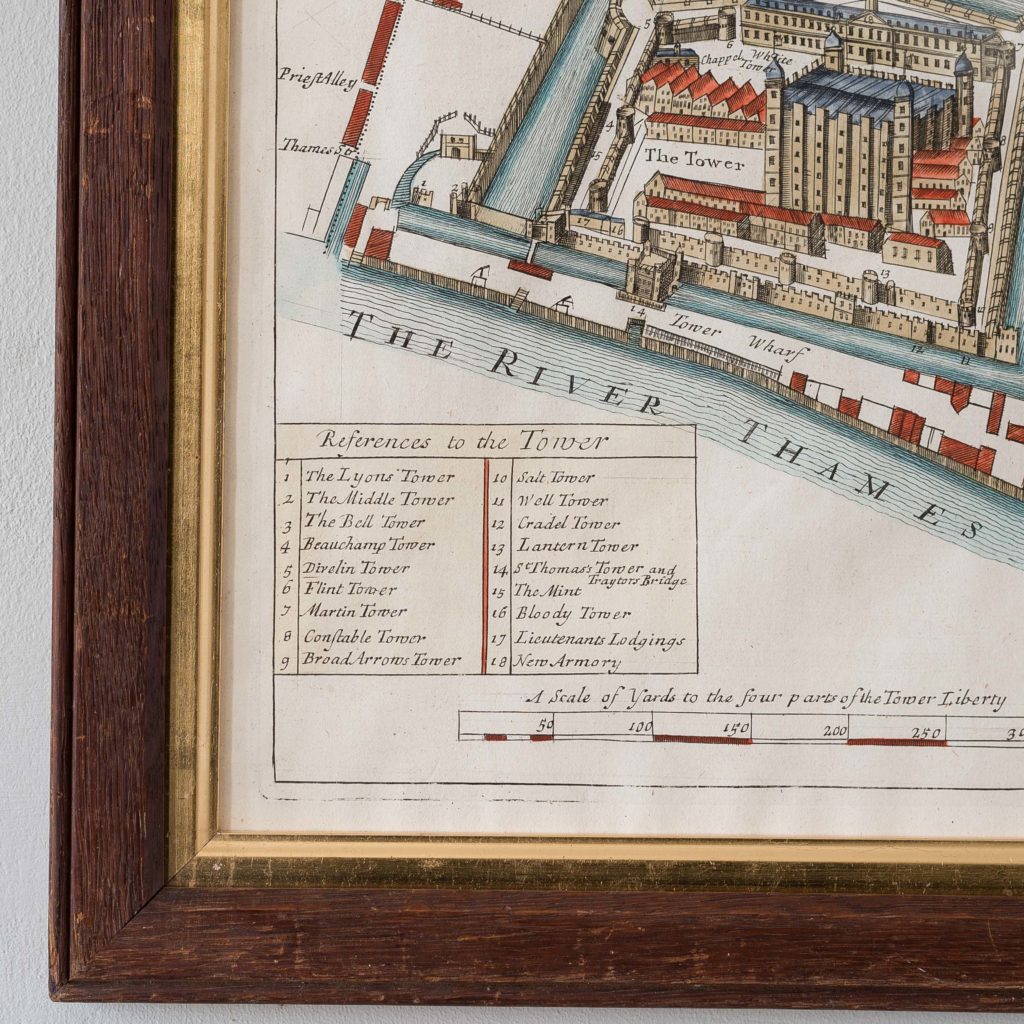 Priest Alley
Thames Str
Chappel
White
Tower
The Tower
Tower Wharf
THE RIVER THAMES
References to the Tower
1 The Lyons Tower
2 The Middle Tower
3 The Bell Tower
4 Beauchamp Tower
5 Divelin Tower
6 Flint Tower
7 Martin Tower
8 Constable Tower
9 Broad Arrows Tower
10 Salt Tower
11 Well Tower
12 Cradel Tower
13 Lantern Tower
14 St Thomas's Tower and
Traytors Bridge
15 The Mint
16 Bloody Tower
17 Lieutenants Lodgings
18 New Armory
A Scale of Yards to the four parts of the Tower Liberty
50 100 150 200 250